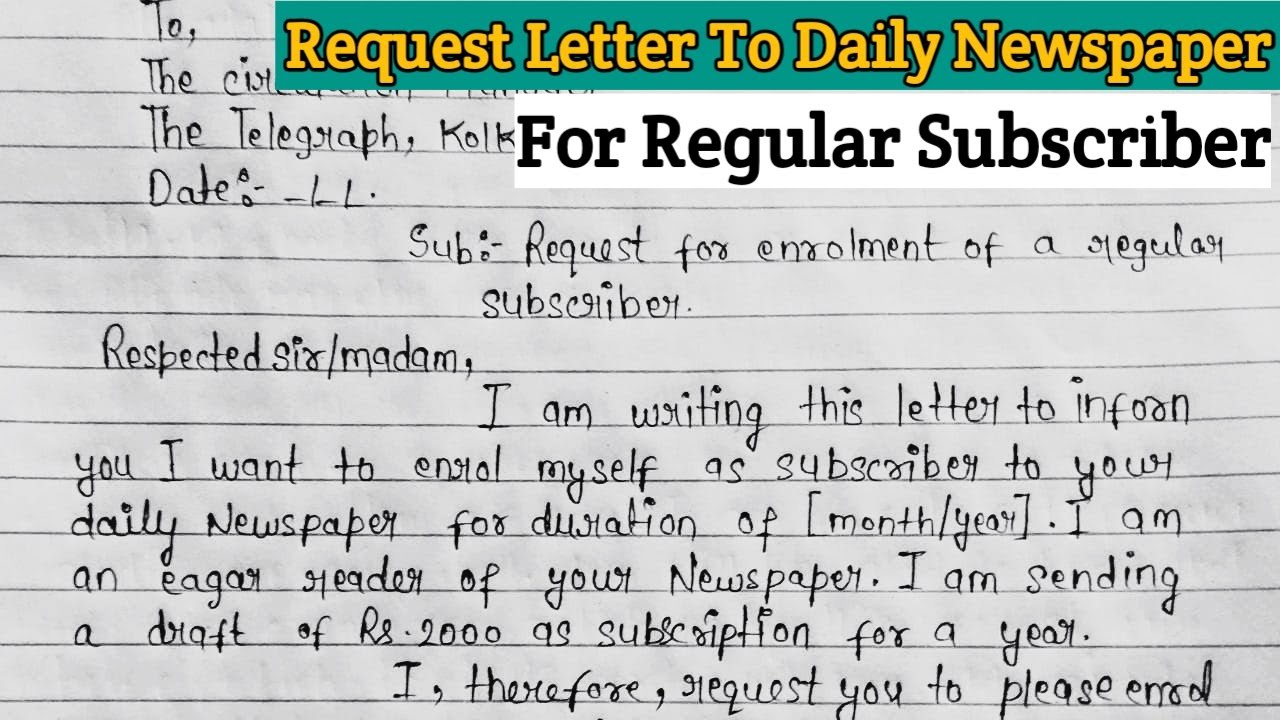 To,
Request Letter To Daily Newspaper
The
The Telegraph, Kolk
For Regular Subscriber
Date:- -/-/-.
Sub:- Request for enrolment of a regular
subscriber.
Respected sir/madam,
I am writing this letter to inforn
you I want to enrol myself as subscriber to your
daily Newspaper for duration of [month/year]. I am
an eagar reader of your Newspaper. I am sending
a draft of Rs.2000 as subscription for a year.
I, therefore, request you to please enrol